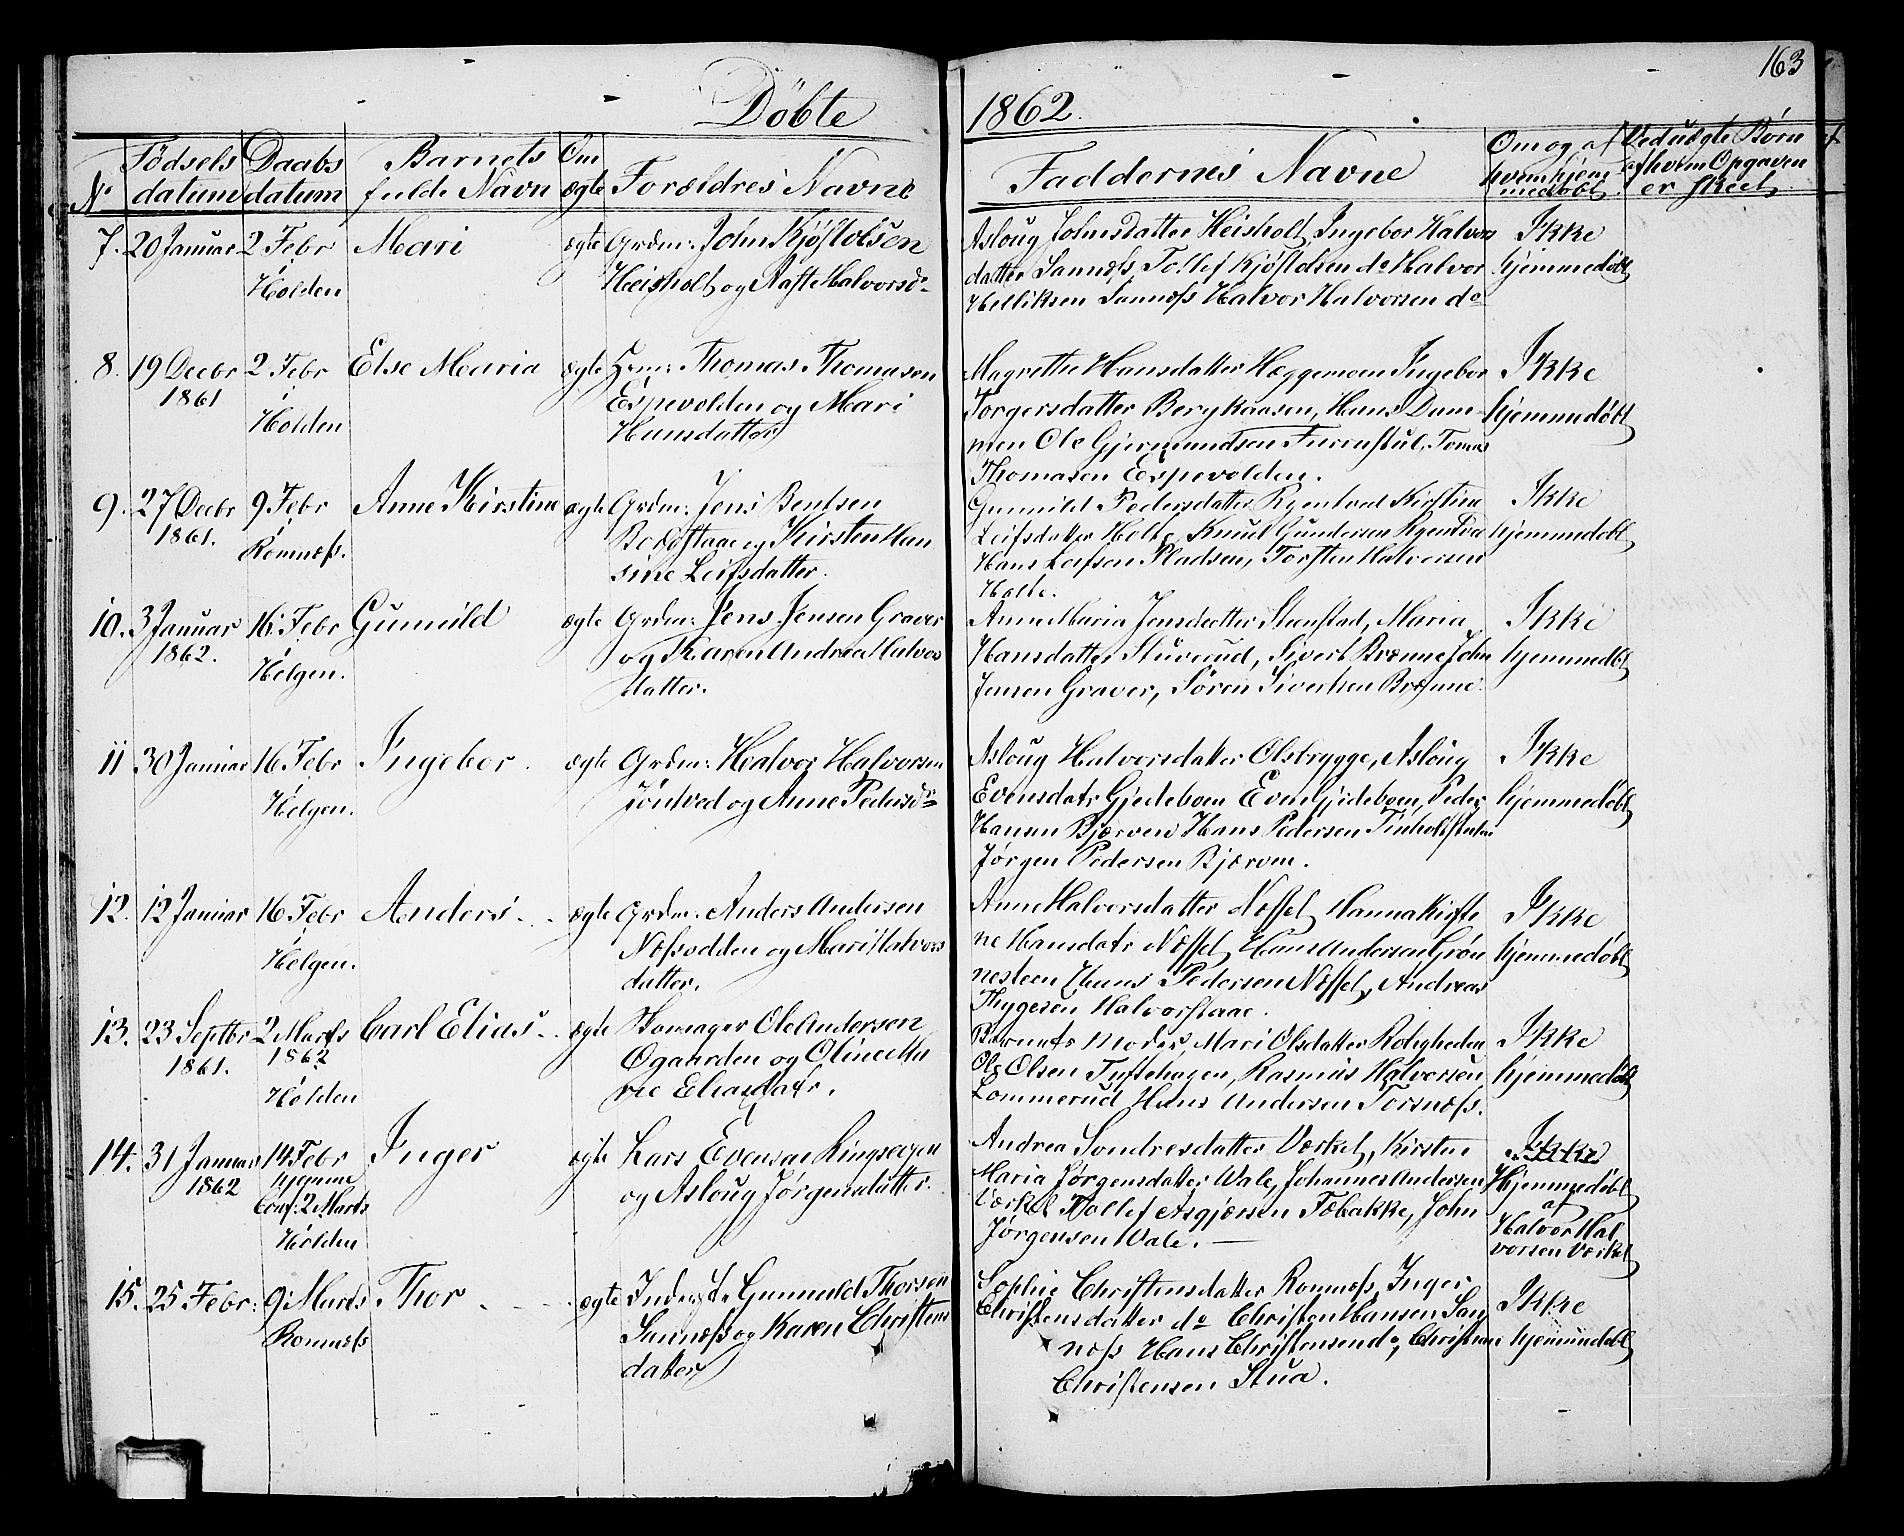 163
Döbte
1862.
No
Födsels datum
Daabs datum
Barnets fulde Navn
Om ægte
Forældres Navne
Faddernes Navne
Om og af hvem hjemmedøbt
Ved uægte Børn af hvem Opgaven er skeet
7. 20 Januar 2 Febr Mari ægte Grdm: John Kjøstolsen
Holden Heisholt og Aaste Halvorsd.
Asloug Johnsdatter Heisholt, Ingebor Halvors
datter Sannæss, Tollef Kjøstolsen do Halvor
Helliksen Sannæss Halvor Halvorsen do
Ikke
hjemmedøbt
8. 19 Decbr 2 Febr Else Maria ægte Hsm: Thomas Thomasen
1861 Holden Espevolden og Mari
Hansdatter
Magrethe Hansdatter Heggemoen Ingebor
Torgersdatter Bergkaasen, Hans Dam
men Ole Gjermundsen Furenstul, Tomas
Thomasen Espevolden.
Ikke
hjemmedøbt
9. 27 Decbr 9 Febr Anne Kirstine ægte Grdm: Jens Bentsen
1861. Romnæss. og Kirsten Han
sine Leifsdatter.
Gunnild Pedersdatter Kirstine
Leifsdatter Holte Knud Gundersen
Hans Leifsen Pladsen, Torsten Halvorsen
Holte.
Ikke
hjemmedøbt
10. 3 Januar 16 Febr Gunnild ægte Grdm: Jens Jensen Graver
1862. Helgen. og Karen Andrea Halvors
datter.
Anne Maria Jensdatter Stenstad, Maria
Hansdatter Stuverud, Sivert Brenne John
Jensen Graver, Søren Sivertsen Brenne.
Ikke
hjemmedøbt
11 30 Januar 16 Febr Ingebor. ægte Grdm: Halvor Halvorsen
Helgen. Jöntved og Anne Pedersdr
Asloug Halvorsdatter Olsbrygge, Asloug
Evensdatr Gjedeboen Even Gjedeboen, Peder
Hansen Bjerven Hans Pedersen
Jörgen Pedersen Bjerven.
Ikke
hjemmedøbt
12. 12 Januar 16 Febr Anders. ægte Grdm: Anders Andersen
Helgen. Næssodden og Mari Halvors
datter.
Anne Halvorsdatter Næsset Hanna Kirsti
ne Hansdatr Næsset, Hans Andersen Grön
nesteen Hans Pedersen Næsset, Andreas
Thygesen Halvorstaae.
Ikke
hjemmedøbt
13. 23 Septbr 2 Marts Carl Elias. ægte Skomager Ole Andersen
1861. 1862 Holden Ogaarden og Oline Ma
rie Eliasdatr.
Barnets Moder, Mari Olsdatter Roligheden
Ole Olsen Tuftehagen, Rasmus Halvorsen
Lommerud Hans Andersen Torsnæss.
Ikke
hjemmedøbt
14. 31 Januar 14 Febr Inger ægte Lars Evensen Ringsevjen
1862 hjemme Conf: 2 Marts Holden og Asloug Jörgensdatter.
Andrea Sondresdatter Værket, Kirsten
Maria Jörgensdatter Wale, Johannes Andersen
Værket Tollef Asgjersen Tæbakke, John
Jörgensen Wale.
Ikke
Hjemmedøbt
af
Halvor Hal
vorsen Værket
15. 25 Febr: 9 Marts Thor ægte Inders. Gunnuld Thorsen
Romnæss Sannæss og Karen Christens
datter
Sophie Christensdatter Romnæss, Inger
Christensdatter do Christen Hansen San
næss Hans Christensen do, Christian
Christensen Stua.
Ikke
hjemmedøbt